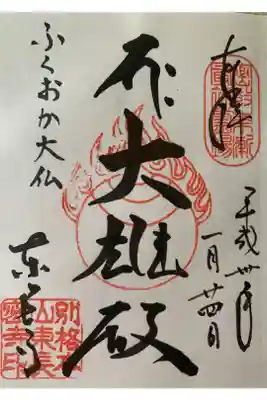 奉拝
平成卅年
一月廿四日
大雄殿
ふくおか大仏
東長寺
別格本
山東長
密寺印